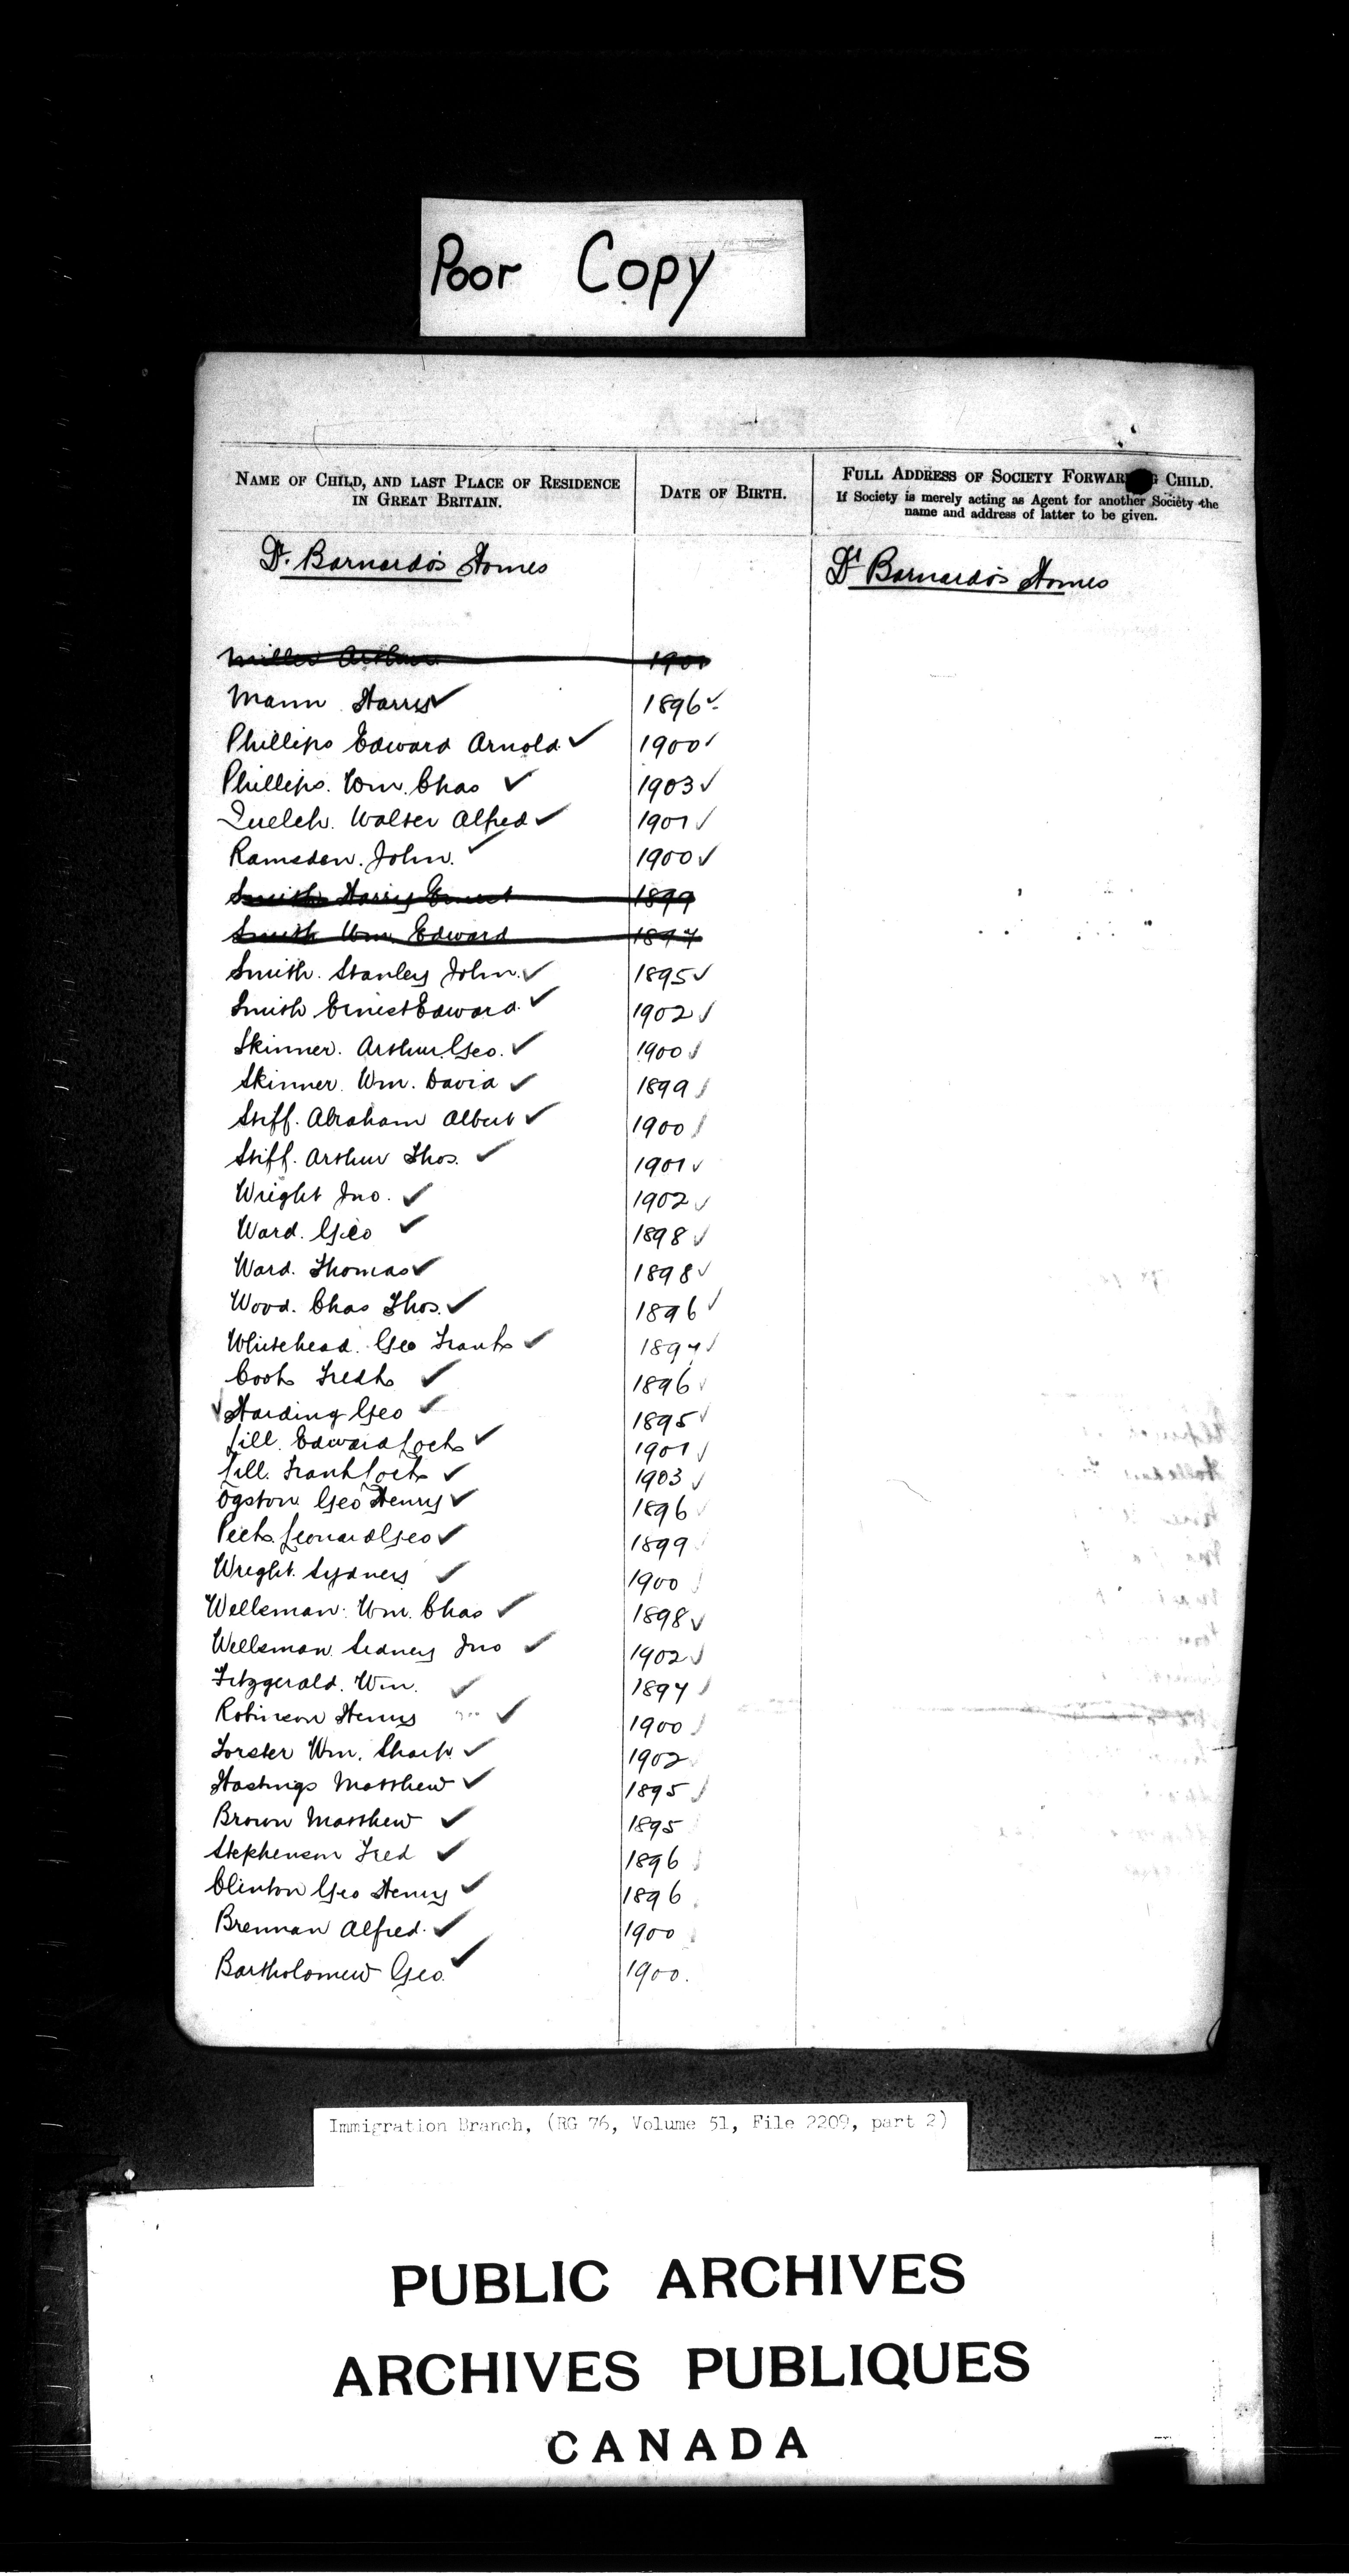 Poor Copy
NAME OF CHILD, AND LAST PLACE OF RESIDENCE IN GREAT BRITAIN.
DATE OF BIRTH.
FULL ADDRESS OF SOCIETY FORWAR G CHILD.
If Society is merely acting as Agent for another Society the name and address of latter to be given.
Dr. Barnardo's Homes
Dr Barnardo's Homes
Miller Arthur 1901
Mann Harry ✓ 1896 ✓
Phillips Edward Arnold ✓ 1900 ✓
Phillips. Wm. Chas ✓ 1903 ✓
Quelch. Walter Alfred ✓ 1901 ✓
Ramsden. John. ✓ 1900 ✓
Smith Harry Ernest 1899
Smith Wm Edward 1897
Smith. Stanley John. ✓ 1895 ✓
Smith Ernest Edward. ✓ 1902 ✓
Skinner. Arthur Geo. ✓ 1900 ✓
Skinner. Wm. David ✓ 1899 ✓
Stiff. Abraham Albert ✓ 1900 ✓
Stiff. Arthur Thos. ✓ 1901 ✓
Wright Jno. ✓ 1902 ✓
Ward. Geo ✓ 1898 ✓
Ward. Thomas ✓ 1898 ✓
Wood. Chas Thos. ✓ 1896 ✓
Whitehead. Geo Frank ✓ 1897 ✓
Cook Fredk ✓ 1896 ✓
✓ Harding Geo ✓ 1895 ✓
Lill. Edward Lock ✓ 1901 ✓
Lill. Frank Lock ✓ 1903 ✓
Ogston Geo Henry ✓ 1896 ✓
Peek. Leonard Geo ✓ 1899 ✓
Wright. Sydney ✓ 1900 ✓
Wellsman. Wm. Chas ✓ 1898 ✓
Wellsman. Sidney Jno ✓ 1902 ✓
Fitzgerald. Wm. ✓ 1897 ✓
Robinson Henry ✓ 1900 ✓
Forster Wm. Sharp. ✓ 1902
Hastings Matthew ✓ 1895 ✓
Brown Matthew ✓ 1895
Stephenson Fred ✓ 1896
Clinton Geo Henry ✓ 1896
Brennan Alfred. ✓ 1900
Bartholomew Geo. ✓ 1900.
Immigration Branch, (RG 76, Volume 51, File 2209, part 2)
PUBLIC ARCHIVES
ARCHIVES PUBLIQUES
CANADA